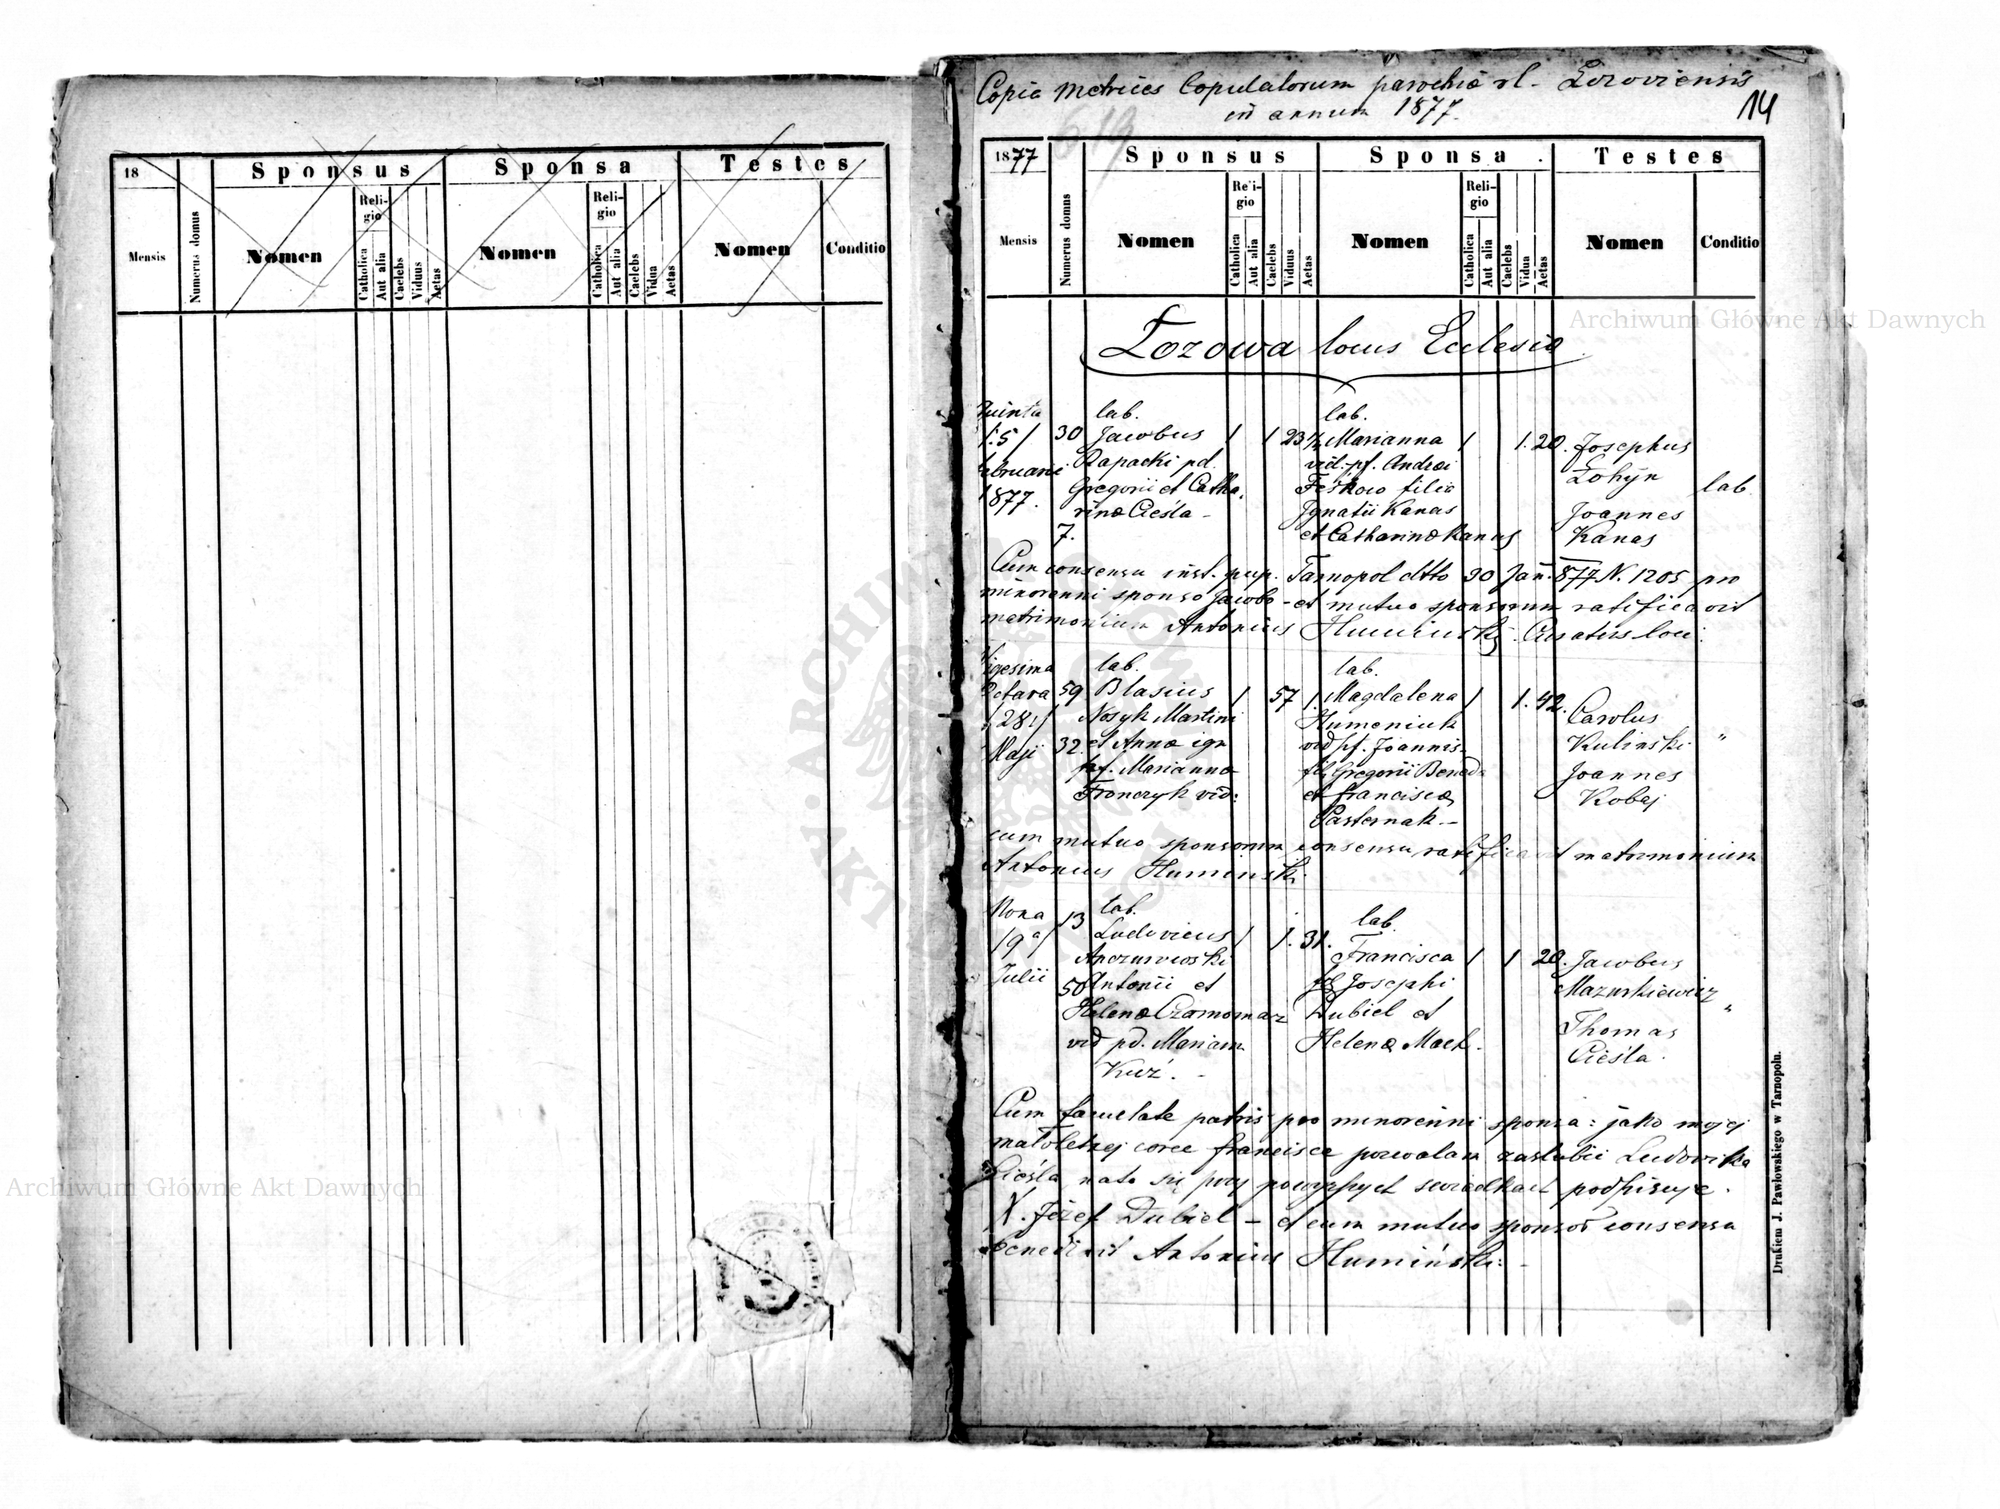 Copia Metrices Copulatorum parochiæ rl. Łozoviensis
in annum 1877.
14
619
18
Mensis
Numerus domus
Sponsus
Nomen
Religio
Catholica
Aut alia
Caelebs
Viduus
Aetas
Sponsa
Nomen
Religio
Catholica
Aut alia
Caelebs
Vidua
Aetas
Testes
Nomen
Conditio
1877
Mensis
Numerus domus
Sponsus
Nomen
Religio
Catholica
Aut alia
Caelebs
Viduus
Aetas
Sponsa
Nomen
Religio
Catholica
Aut alia
Caelebs
Vidua
Aetas
Testes
Nomen
Conditio
Łozowa locus Ecclesiæ
Quinta
/:5/
Februarii
1877.
30
7.
lab.
Jacobus
Rapacki pd.
Gregorii et Catha
rinæ Cieśla –
1 1 23½
lab.
Marianna
vid. pf. Andrei
Feśkow filia
Ignatii Kanas
et Catharinæ Kanus
1 1. 20.
Josephus
Łohyn
Joannes
Kanas
lab.
Cum consensu inst. pup. Tarnopol dtto 30 Jan. 877 N. 1205 pro
minorenni sponso Jacobo – et mutuo sponsorum ratificavit
matrimonium Antonius Humiński Curatus loci.
Vigesima
Octava
/28:/
Maji
59
32.
lab.
Blasius
Nosyk Martini
et Annæ ign
pf. Marianna
Fronczyk vid:
1 57
lab.
1. Magdalena
Humeniuk
vid pf. Joannis
fil. Gregorii Bened
et Franciscæ
Pasternak. –
1 1. 42.
Carolus
Kulinski "
Joannes
Kobej
cum mutuo sponsorum consensu ratificavit matrimonium
Antonius Humiński.
Nona
/9a/
Julii
13
50
lab.
Ludovicus
Antonii et
Helenæ
vid pd. Mariam
Kuź. –
1 1. 31.
lab.
Francisca
fil Josephi
Dubiel et
Helenæ Mach.
1 1 20.
Jacobus
Mazurkiewicz "
Thomas
Cieśla.
Cum facultate patris pro minorenni sponsa: jako mojej
małoletniej corce Francisce pozwalam zaslubic Ludowika
Cieśla, nato się przy powyższych swiadkach podpisuje.
X. Józef Dubiel – et cum mutuo sponsor consensu
benedixit Antonius Humiński. –
Drukiem J. Pawłowskiego w Tarnopolu.
Archiwum Główne Akt Dawnych
Archiwum Główne Akt Dawnych